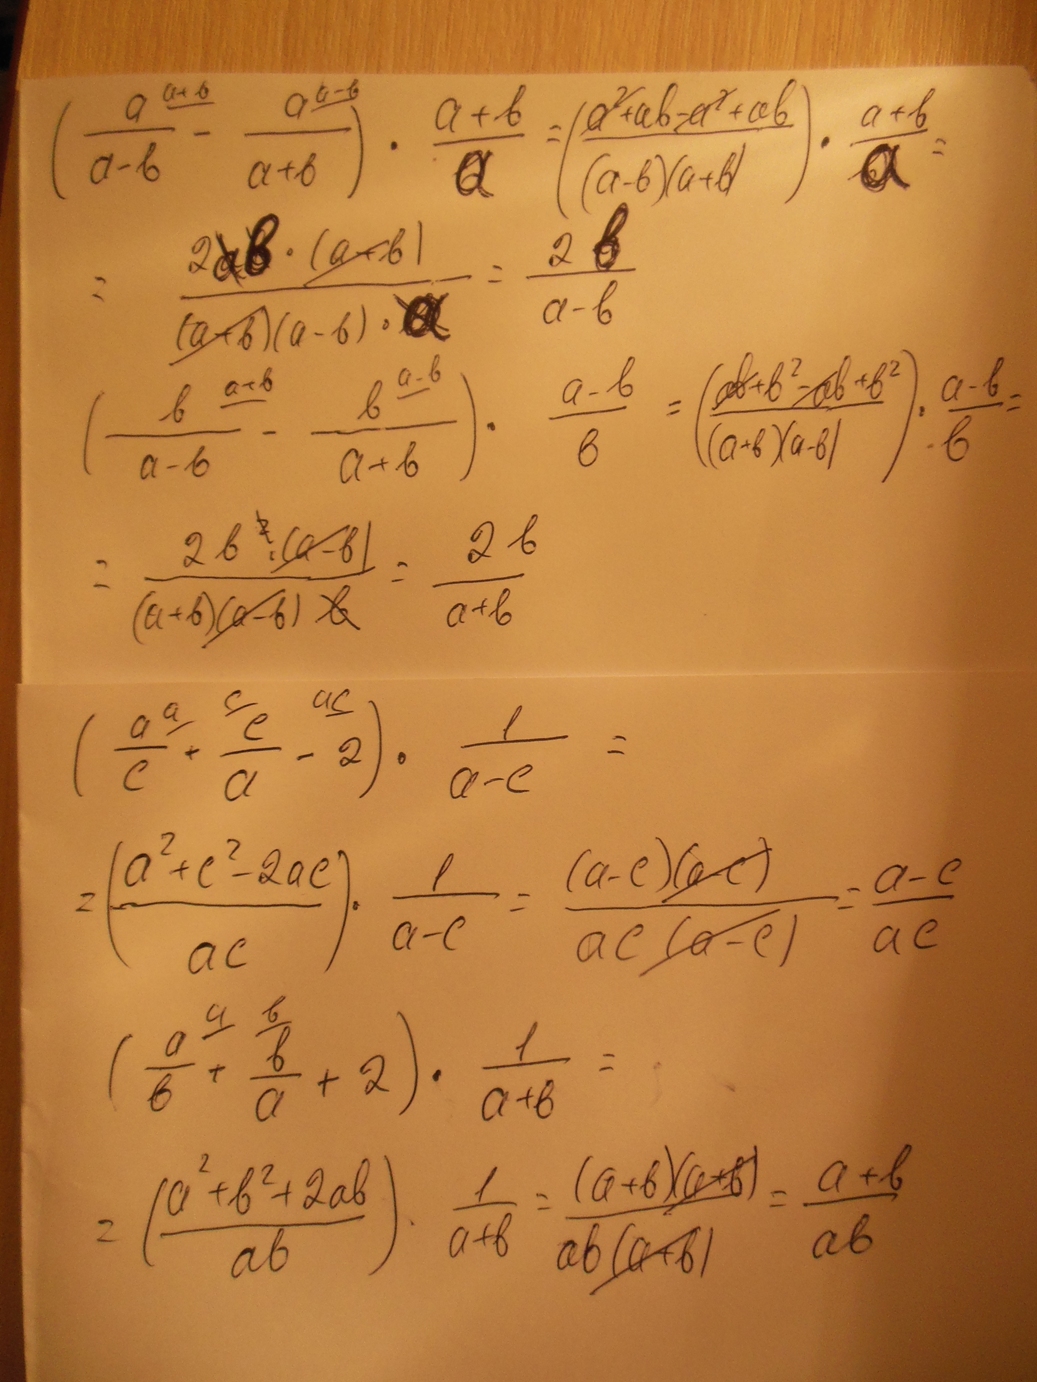 (a^{a+b}/(a-b) - a^{a-b}/(a+b)) · (a+b)/a = ((a²+ab-a²+ab)/((a-b)(a+b))) · (a+b)/a =
= (2ab·(a+b))/((a+b)(a-b)·a) = 2b/(a-b)
(b^{a+b}/(a-b) - b^{a-b}/(a+b)) · (a-b)/b = ((ab+b²-ab+b²)/((a+b)(a-b))) · (a-b)/b =
= (2b²·(a-b))/((a+b)(a-b)b) = 2b/(a+b)
(a^{a}/c + c^{c}/a - 2^{ac}) · 1/(a-c) =
= ((a²+c²-2ac)/ac) · 1/(a-c) = ((a-c)(a-c))/(ac(a-c)) = (a-c)/ac
(a^{a}/b + b^{b}/a + 2) · 1/(a+b) =
= ((a²+b²+2ab)/ab) · 1/(a+b) = ((a+b)(a+b))/(ab(a+b)) = (a+b)/ab